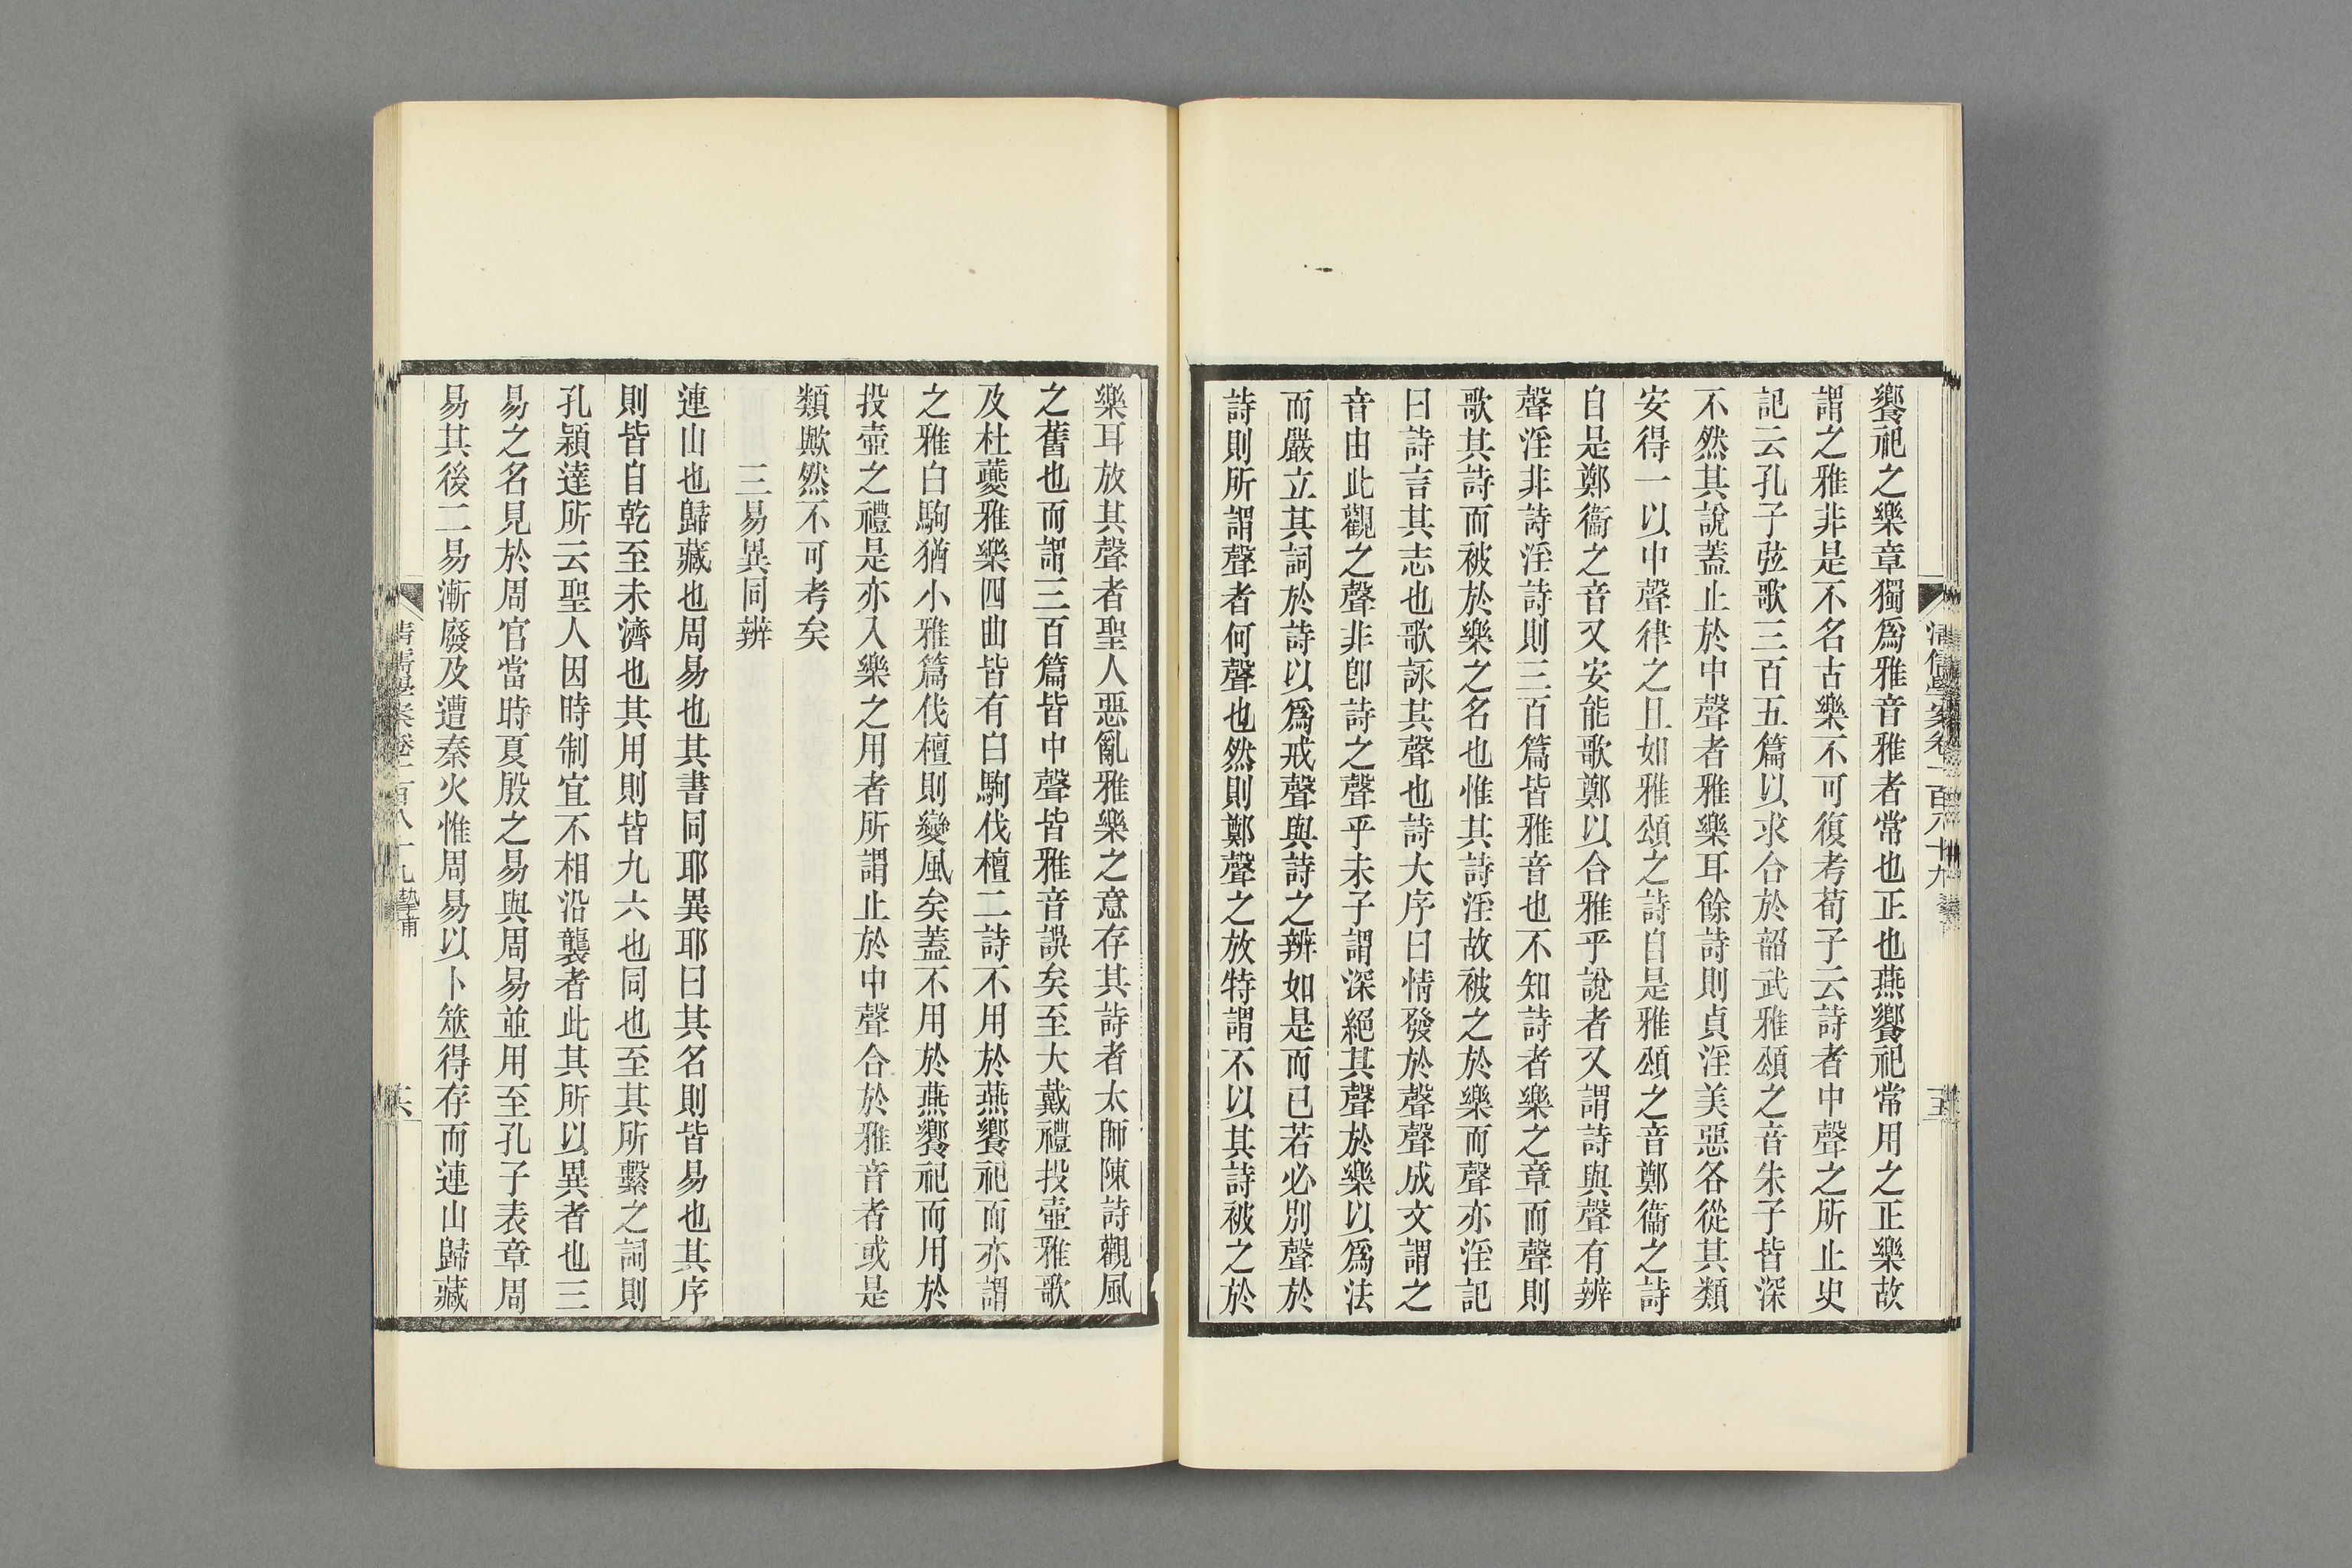 饗祀之樂章獨爲雅音雅者常也正也燕饗祀常用之正樂故
謂之雅非是不名古樂不可復考荀子云詩者中聲之所止史
記云孔子弦歌三百五篇以求合於韶武雅頌之音朱子皆深
不然其說蓋止於中聲者雅樂耳餘詩則貞淫美惡各從其類
安得一以中聲律之且如雅頌之詩自是雅頌之音鄭衞之詩
自是鄭衞之音又安能歌鄭以合雅乎說者又謂詩與聲有辨
聲淫非詩淫詩則三百篇皆雅音也不知詩者樂之章而聲則
歌其詩而被於樂之名也惟其詩淫故被之於樂而聲亦淫記
曰詩言其志也歌詠其聲也詩大序曰情發於聲聲成文謂之
音由此觀之聲非卽詩之聲乎未子謂深絕其聲於樂以爲法
而嚴立其詞於詩以爲戒聲與詩之辨如是而已若必別聲於
詩則所謂聲者何聲也然則鄭聲之放特謂不以其詩被之於
樂耳放其聲者聖人惡亂雅樂之意存其詩者太師陳詩觀風
之舊也而謂三百篇皆中聲皆雅音誤矣至大戴禮投壺雅歌
及杜夔雅樂四曲皆有白駒伐檀二詩不用於燕饗祀而亦謂
之雅白駒猶小雅篇伐檀則變風矣蓋不用於燕饗祀而用於
投壺之禮是亦入樂之用者所謂止於中聲合於雅音者或是
類歟然不可考矣
三易異同辨
連山也歸藏也周易也其書同耶異耶曰其名則皆易也其序
則皆自乾至未濟也其用則皆九六也同也至其所繫之詞則
孔穎達所云聖人因時制宜不相沿襲者此其所以異者也三
易之名見於周官當時夏殷之易與周易並用至孔子表章周
易其後二易漸廢及遭秦火惟周易以卜筮得存而連山歸藏
清儒學案卷一百八十九 摯甫